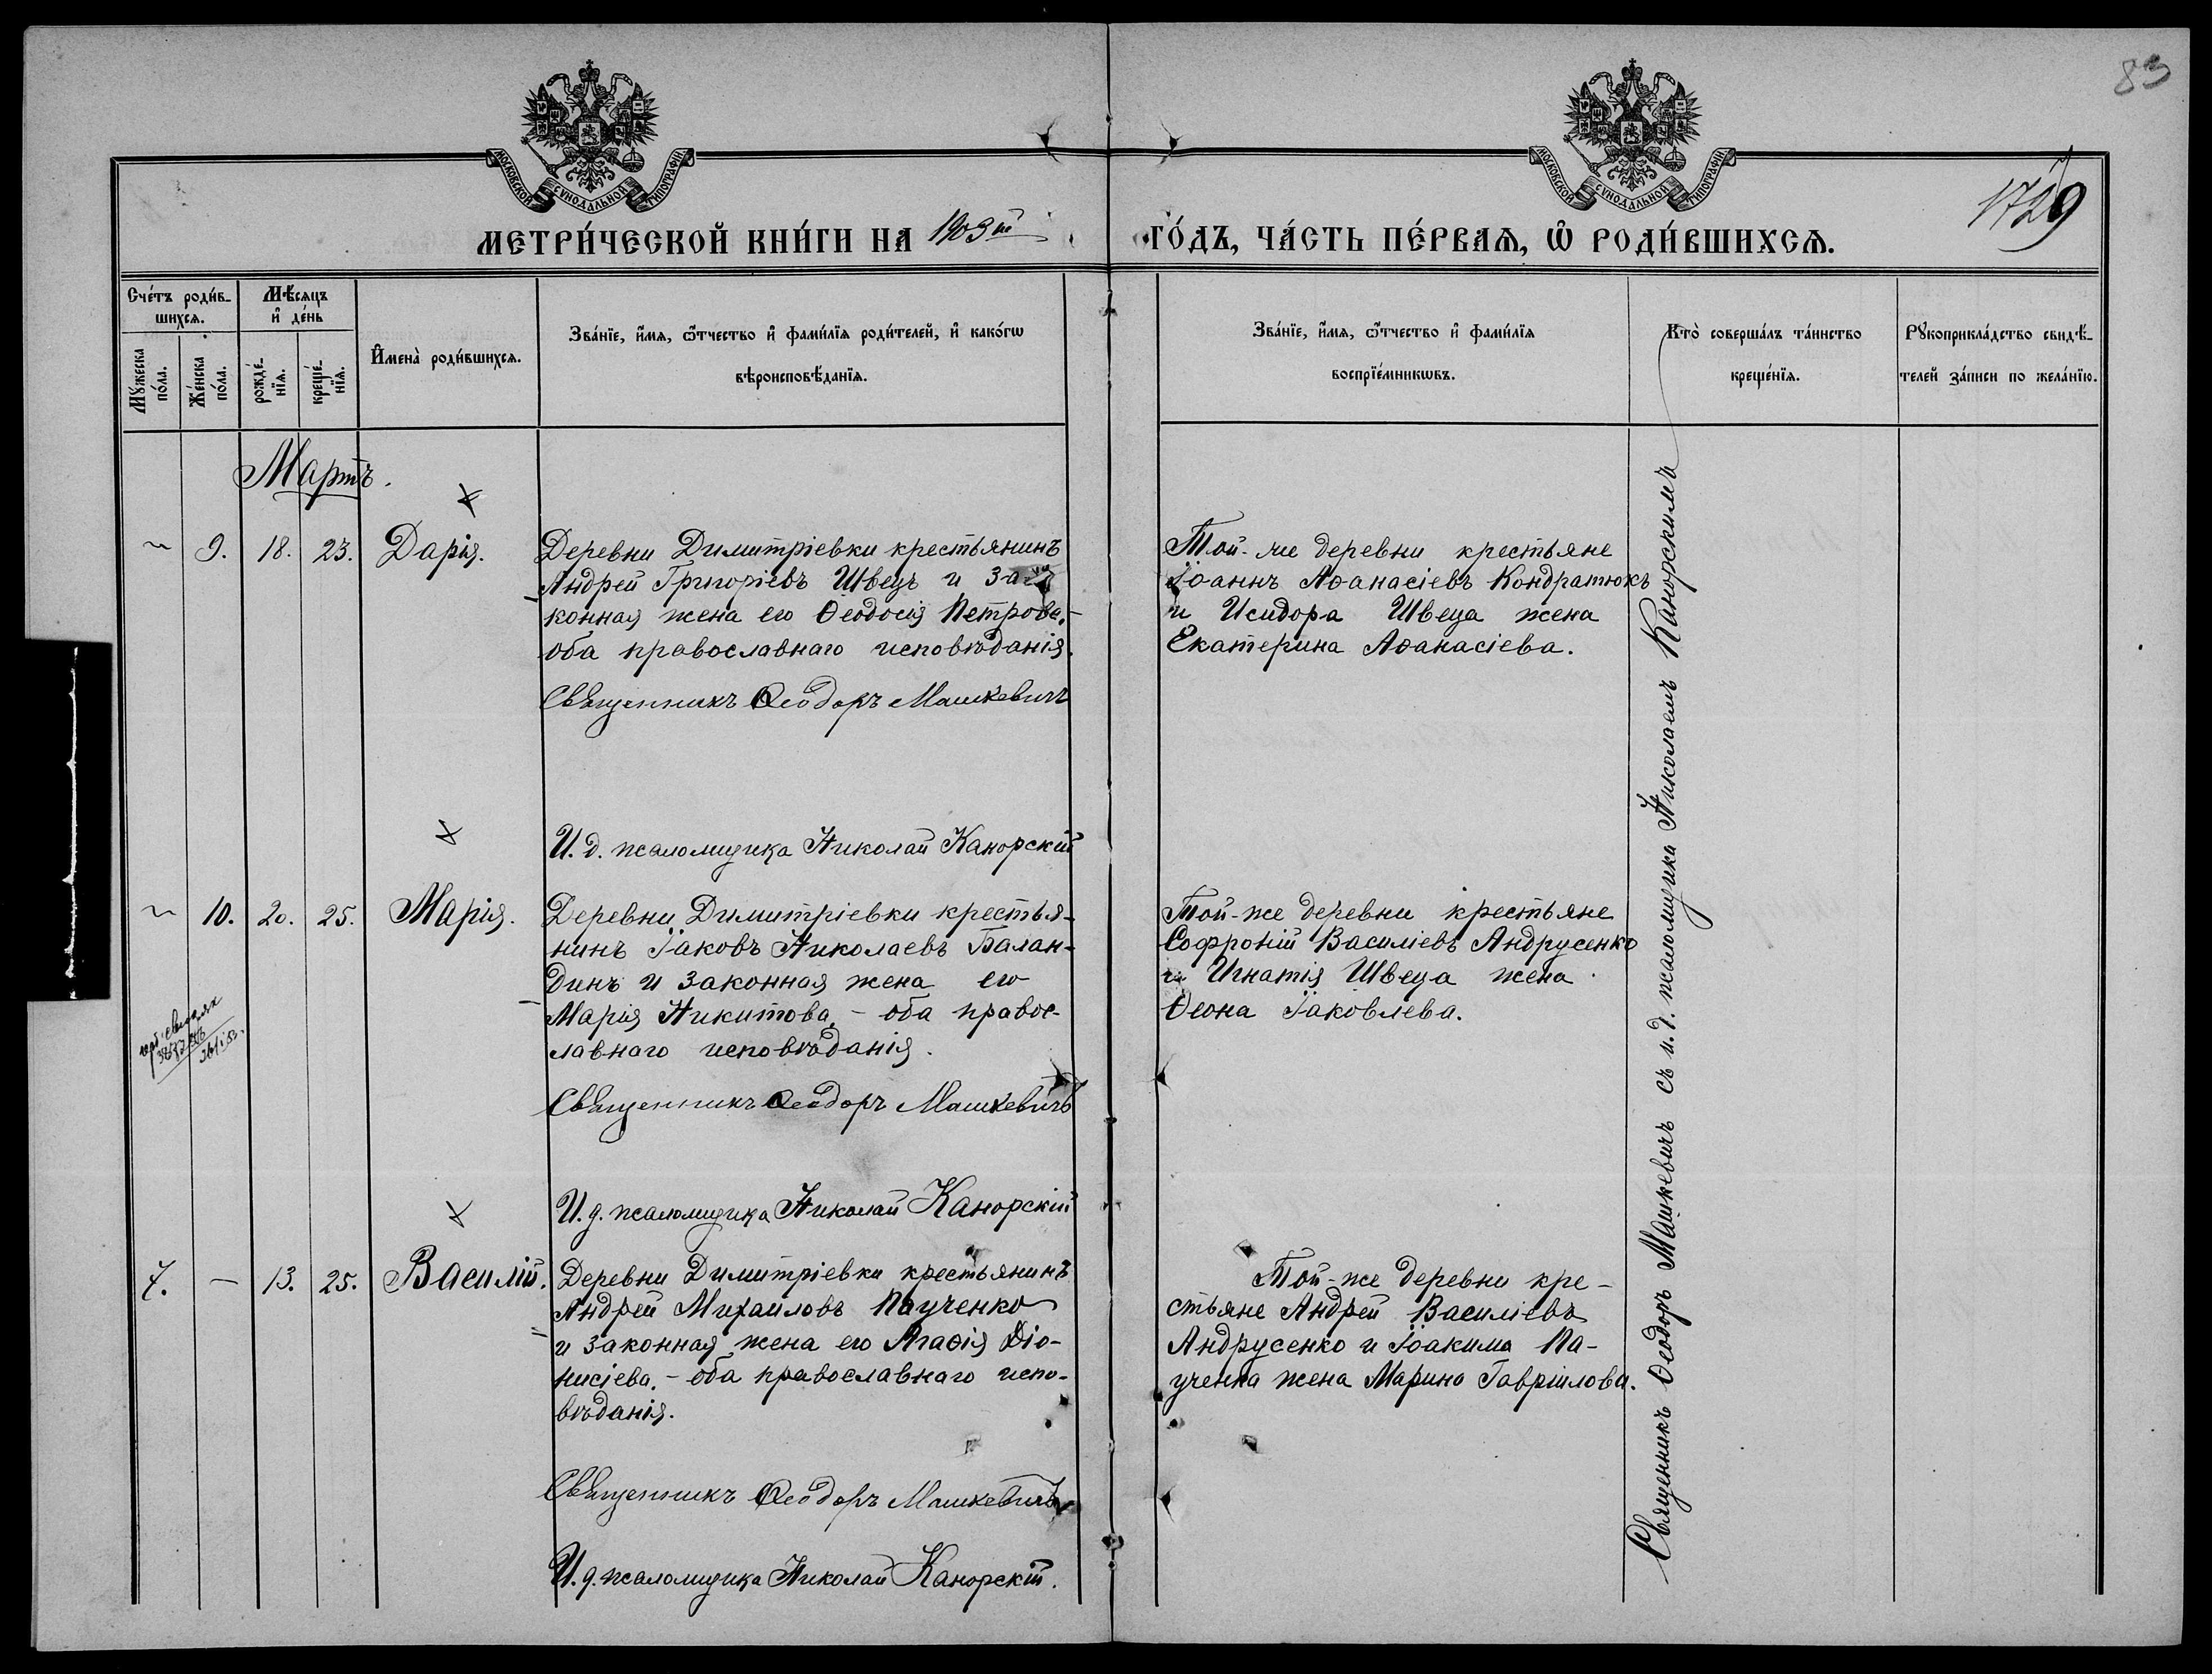 83
МОСКОВСКОЙ СѴНОДАЛЬНОЙ ТИПОГРАФІИ
МОСКОВСКОЙ СѴНОДАЛЬНОЙ ТИПОГРАФІИ
МЕТРИ́ЧЕСКОЙ КНИ́ГИ НА 1903ій ГО́ДЪ, ЧА́СТЬ ПЕ́РВАѦ, Ѡ҆ РОДИ́ВШИХСѦ.
Сче́тъ роди́в-
шихсѧ.
Мꙋ́жеска по́ла.
Же́нска по́ла.
Мѣ́сѧцъ
и҆ де́нь
рожде́-
нїѧ.
креще́-
нїѧ.
И҆мена̀ роди́вшихсѧ.
Зва́нїе, и҆́мѧ, ѻ҆́тчество и҆ фами́лїѧ роди́телей, и҆ како́гѡ
вѣроисповѣ́данїѧ.
Зва́нїе, и҆́мѧ, ѻ҆́тчество и҆ фами́лїѧ
воспрїе́мникѡвъ.
Кто̀ соверша́лъ та́инство
креще́нїѧ.
Рꙋкоприкла́дство свидѣ́-
телей за́писи по жела́нїю.
Мартъ.
9. 18. 23. Дарія.
Деревни Димитріевки крестьянинъ
Андрей Григоріевъ Швецъ и за-
конная жена его Ѳеодосія Петрова,-
оба православнаго исповѣданія.
Священникъ Ѳеодоръ Машкевичъ
И. д. псаломщика Николай Канорскій
Той-же деревни крестьяне
Іоаннъ Аѳанасіевъ Кондратюкъ
и Исидора Швеца жена
Екатерина Аѳанасіева.
10. 20. 25. Марія.
Деревни Димитріевки крестья-
нинъ Іаковъ Николаевъ Балан-
динъ и законная жена его
Марія Никитова, - оба правос-
лавнаго исповѣданія.
Священникъ Ѳеодоръ Машкевичъ
И. д. псаломщика Николай Канорскій
Той-же деревни крестьяне
Софроній Василіевъ Андрусенко
и Игнатія Швеца жена
Ѳеона Іаковлева.
7. — 13. 25. Василій.
Деревни Димитріевки крестьянинъ
Андрей Михаиловъ Паученко
и законная жена его Агаѳія Діо-
нисіева, - оба православнаго испо-
вѣданія.
Священникъ Ѳеодоръ Машкевичъ
И. д. псаломщика Николай Канорскій.
Той-же деревни кре-
стьяне Андрей Василіевъ
Андрусенко и Іоакима Па-
ученка жена Марина Гавріилова.
Священникъ Ѳеодоръ Машкевичъ съ и. д. псаломщика Николаемъ Канорскимъ